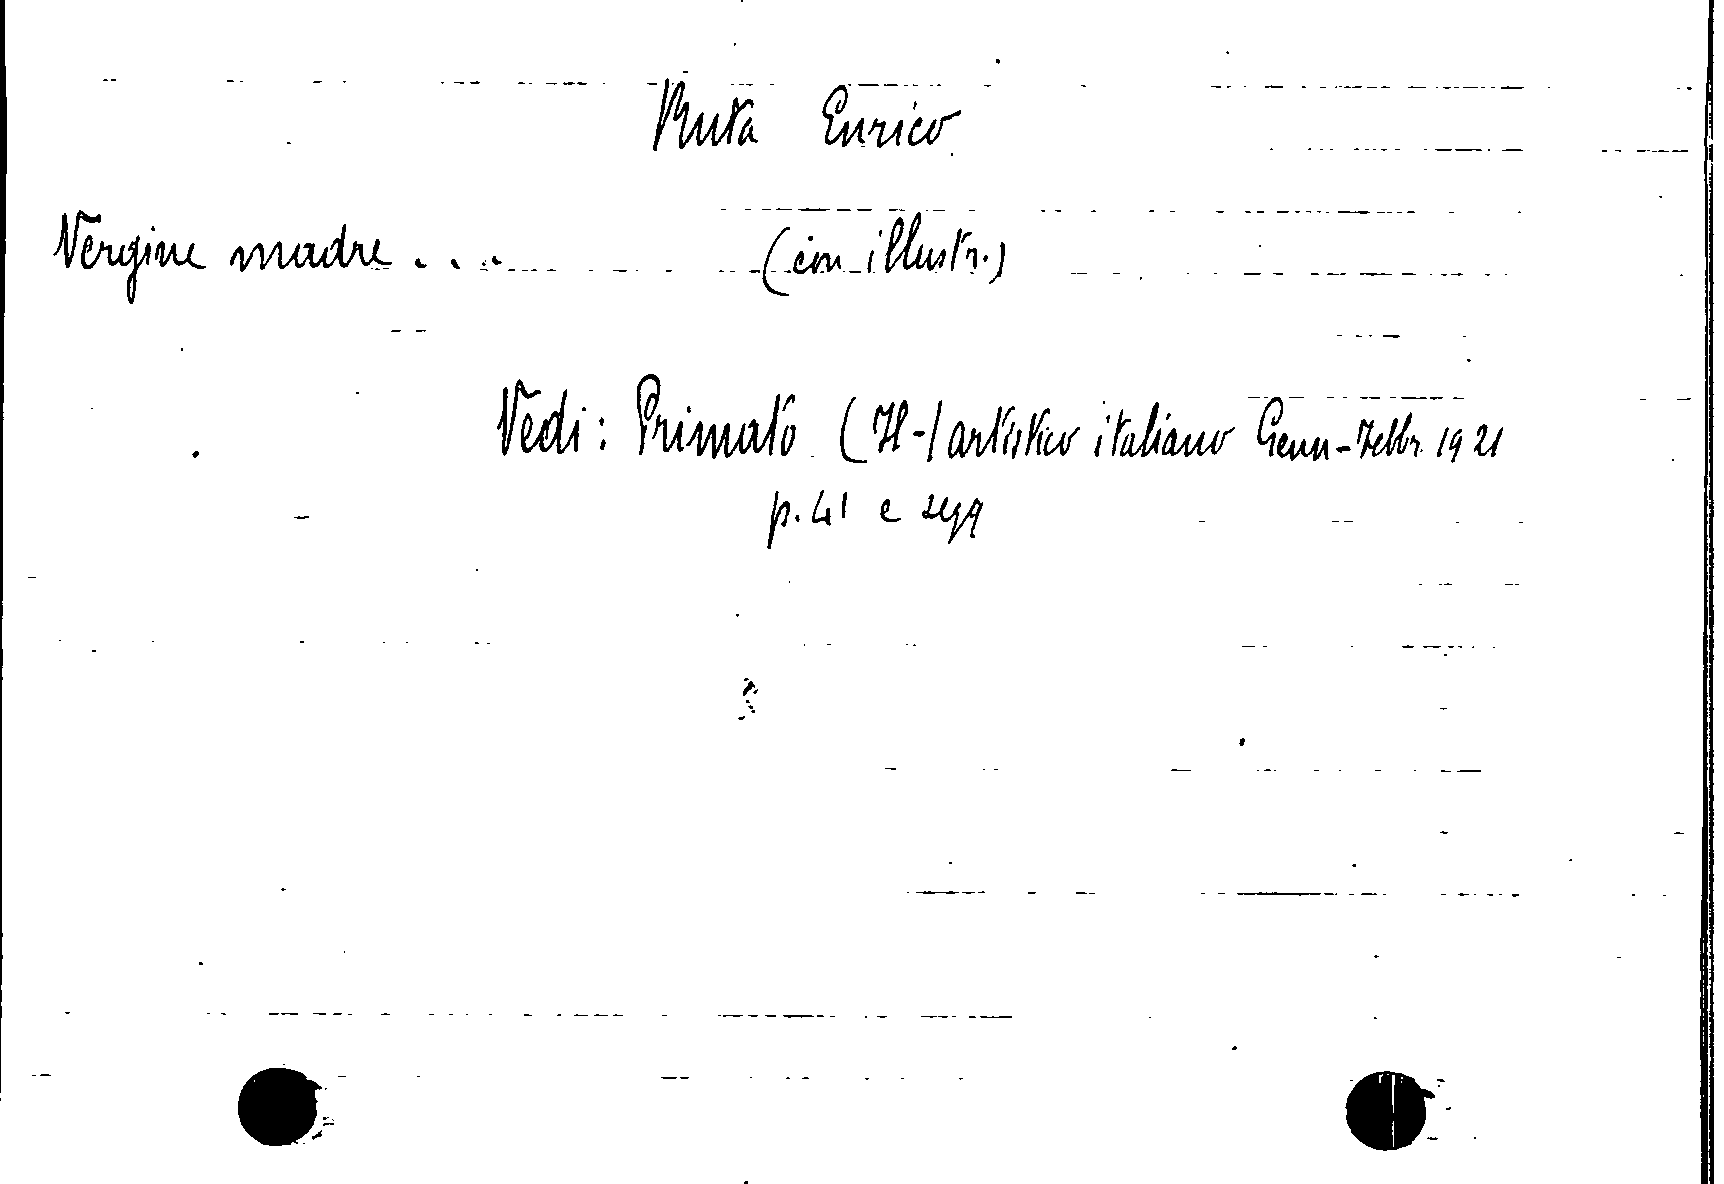 Ruta Enrico
Vergine madre . . . (con illustr.)
Vedi: Primato (Il-) artistico italiano Genn-Febbr. 1921
p. 41 e segg